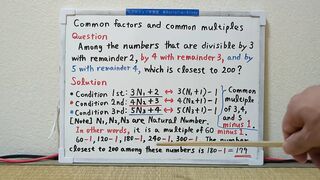 Common factors and common multiples
Question
Among the numbers that are divisible by 3
with remainder 2, by 4 with remainder 3, and by
5 with remainder 4, which is closest to 200?
Solution
• Condition 1st: 3N₁+2 ↔ 3(N₁+1)-1
• Condition 2nd: 4N₂+3 ↔ 4(N₂+1)-1
• Condition 3rd: 5N₃+4 ↔ 5(N₃+1)-1
Common
multiple
of 3,4,
and 5
minus 1.
[Note] N₁, N₂, N₃ are Natural Number.
In other words, it is a multiple of 60 minus 1.
60-1, 120-1, 180-1, 240-1, 300-1 The number
closest to 200 among these numbers is 180-1=179